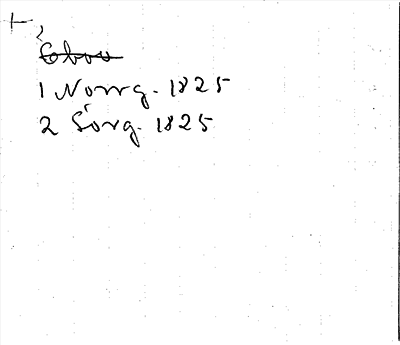 1 Norrg. 1825
2 Sörg. 1825